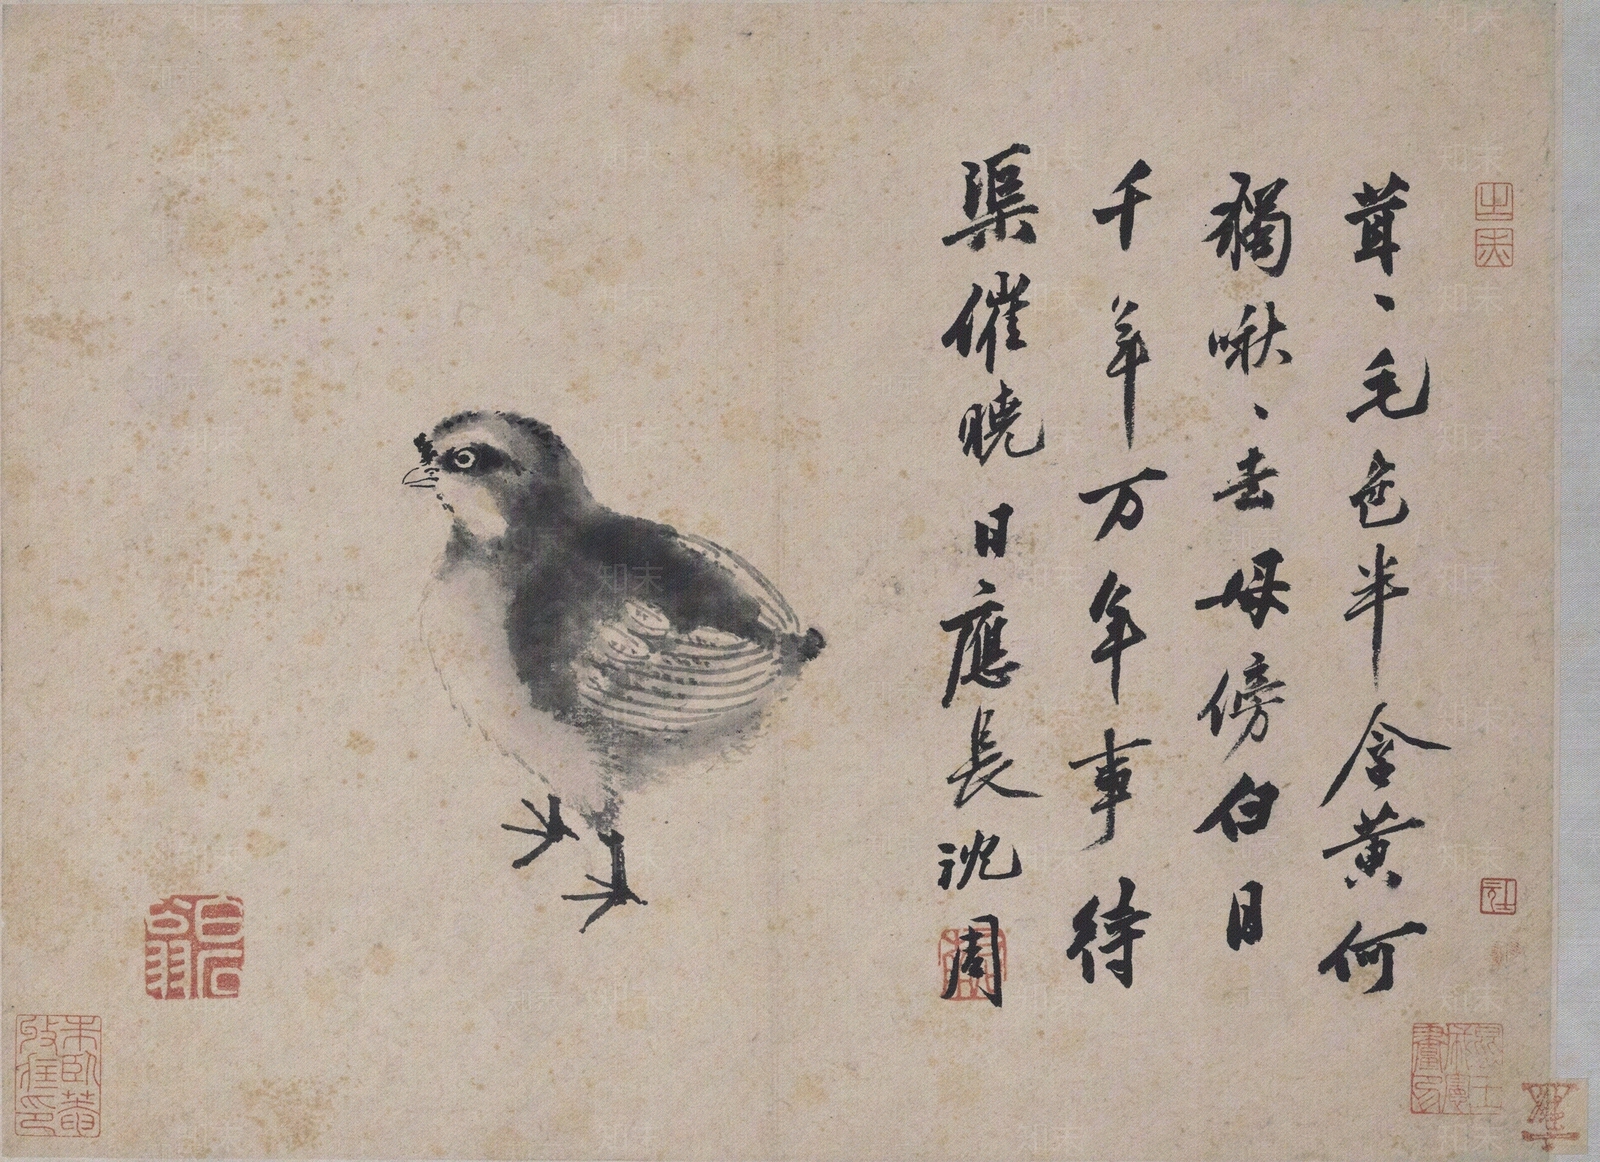 茸、毛色半含黄何
獨啾、去母傍白日
千年万年事待
渠催曉日應長沈周
知末